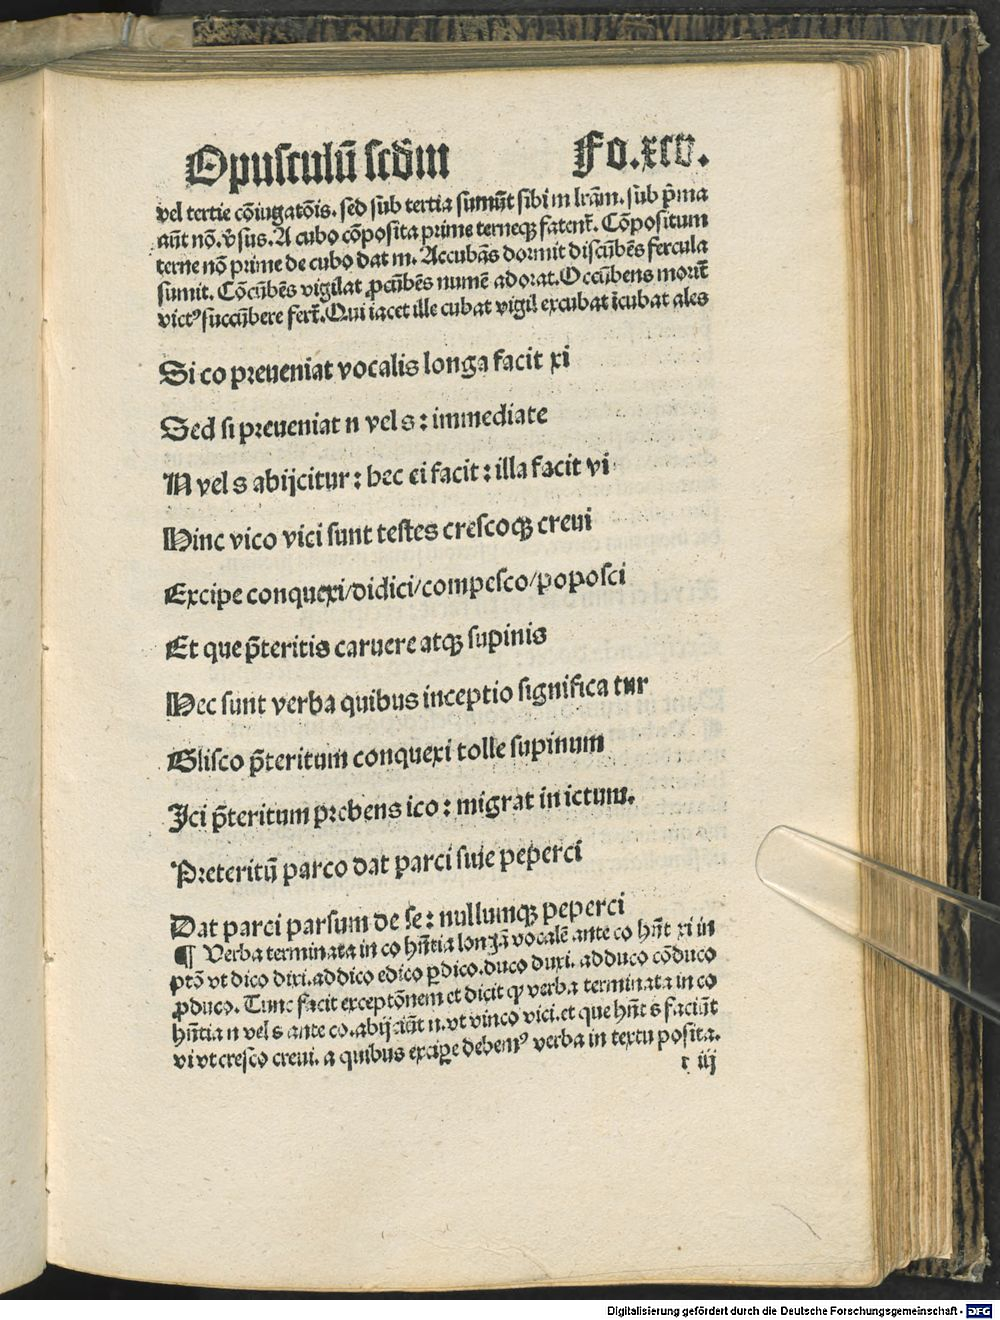 Opusculū scd̄m Fo.xcv.
vel tertie cōiugatōis. sed sub tertia sumūt sibi m lr̄am. sub p̄ma
aūt nō. v̄sus. A cubo cōposita prime terneqȝ fatent᷑. Cōpositum
terne nō prime de cubo dat m. Accubās dormit discūbēs fercula
sumit. Cōcūbēs vigilat ꝓcūbēs numē adorat. Occūbens morit᷑
victꝰ succūbere fert᷑. Qui iacet ille cubat vigil excubat īcubat ales
Si co preueniat vocalis longa facit xi
Sed si preueniat n vel s : immediate
N vel s abijcitur : hec ci facit : illa facit vi
Hinc vico vici sunt testes crescoqȝ creui
Excipe conquexi/didici/compesco/poposci
Et que p̄teritis caruere atqȝ supinis
Hec sunt verba quibus inceptio significa tur
Glisco p̄teritum conquexi tolle supinum
Ici p̄teritum prebens ico : migrat in ictum.
Preteritū parco dat parci siue peperci
Dat parci parsum de se : nullumqȝ peperci
¶ Verba terminata in co hn̄tia longā vocalē ante co hn̄t xi in
p̄tō vt dico dixi. addico edico p̄dico. duco duxi. adduco cōduco
ꝓduco. Tunc facit exceptōnem et dicit ꝙ verba terminata in co
hn̄tia n vel s ante co. abijciūt n. vt vinco vici. et que hn̄t s faciūt
vi vt cresco creui. a quibus excipe debemꝰ verba in textu posita.
r iij
Digitalisierung gefördert durch die Deutsche Forschungsgemeinschaft - DFG